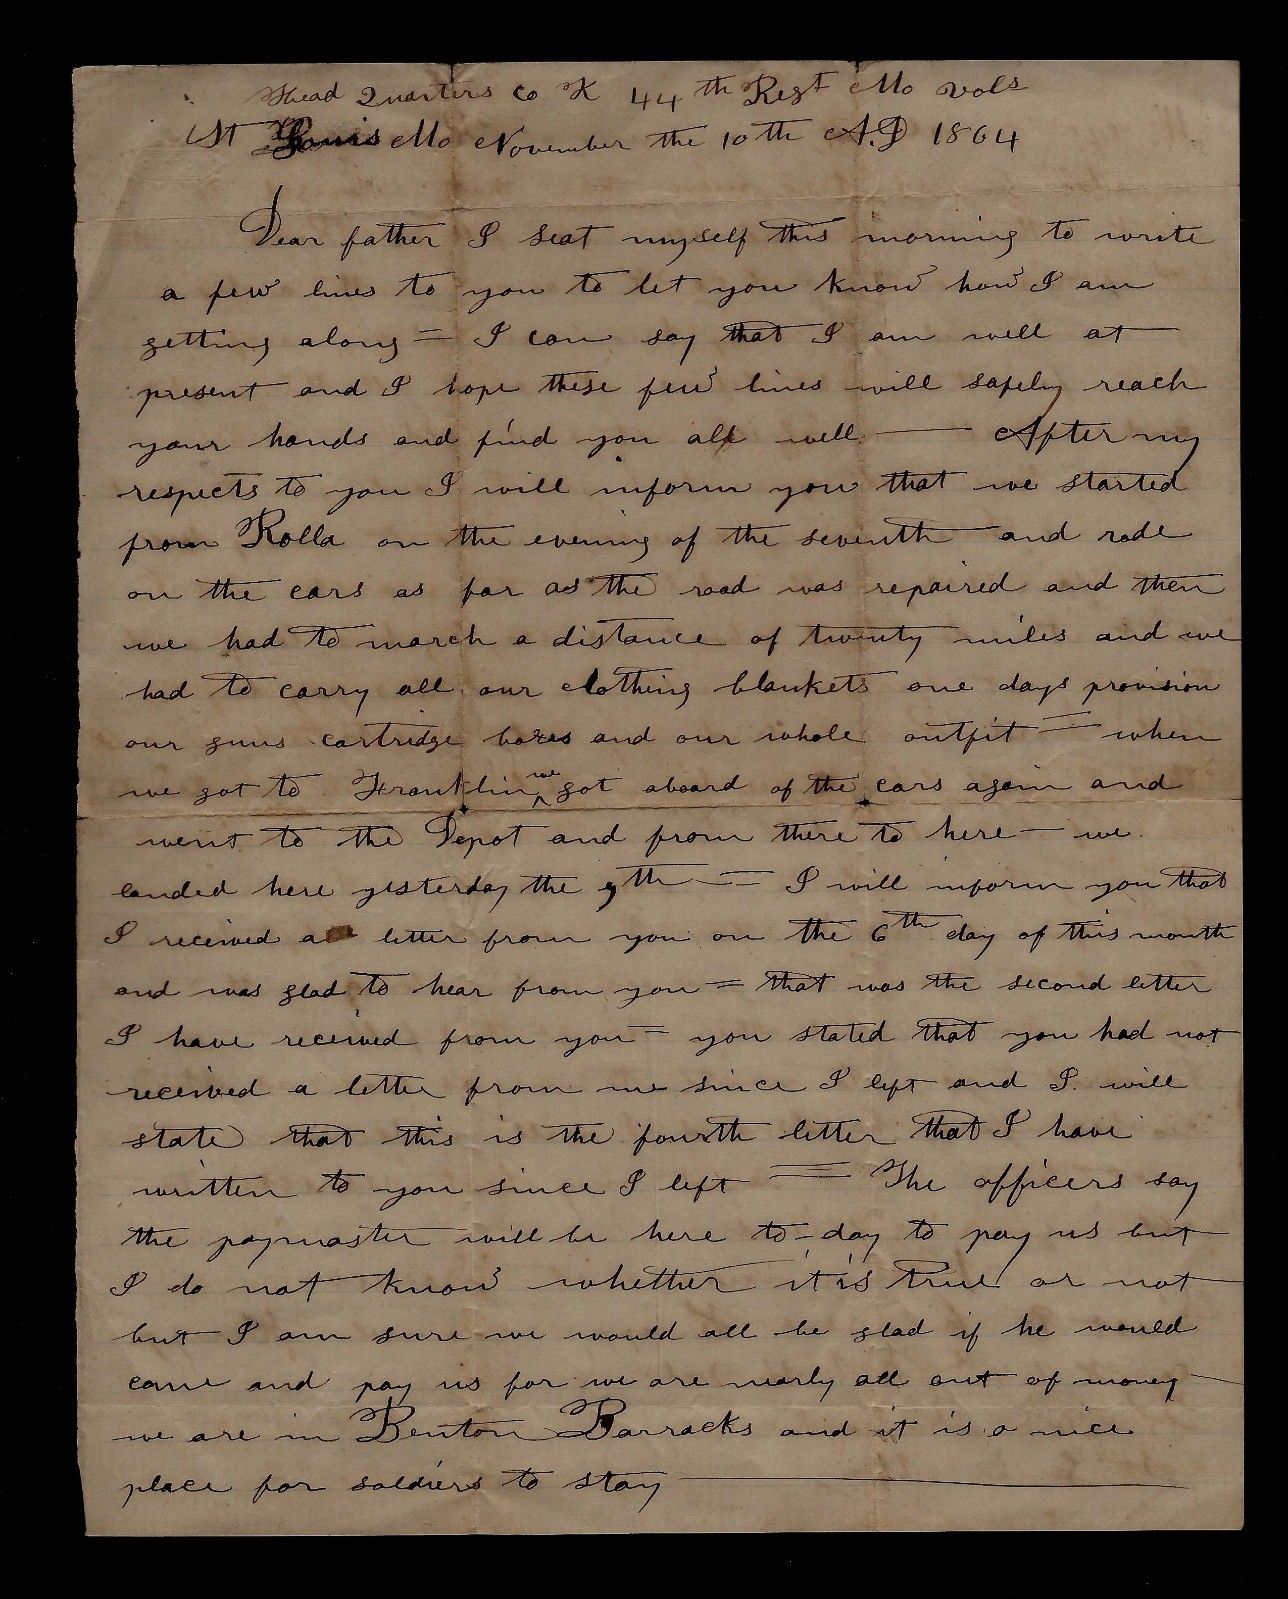 Head Quarters Co K 44th Regt Mo Vols
St Louis Mo November the 10th A.D 1864
Dear father I seat myself this morning to write
a few lines to you to let you know how I am
getting along = I can say that I am well at
present and I hope these few lines will safely reach
your hands and find you all well — After my
respects to you I will inform you that we started
from Rolla on the evening of the seventh and rode
on the cars as far as the road was repaired and then
we had to march a distance of twenty miles and we
had to carry all our clothing blankets one days provision
our guns cartridge boxes and our whole outfit = when
we got to Franklin we got aboard of the cars again and
went to the Depot and from there to here — we
landed here yesterday the 9th = I will inform you that
I received a letter from you on the 6th day of this month
and was glad to hear from you = that was the second letter
I have received from you = you stated that you had not
received a letter from me since I left and I will
state that this is the fourth letter that I have
written to you since I left = The officers say
the paymaster will be here to-day to pay us but
I do not know whether it is true or not
but I am sure we would all be glad if he would
come and pay us for we are nearly all out of money —
we are in Benton Barracks and it is a nice
place for soldiers to stay —